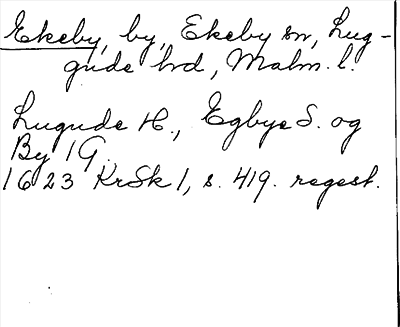 Ekeby, by, Ekeby sn, Lug-
gude hd, Malm. l.
Lugude H., Egbye S. og
By 1 G.
1623 KrSk 1, s. 419. regest.